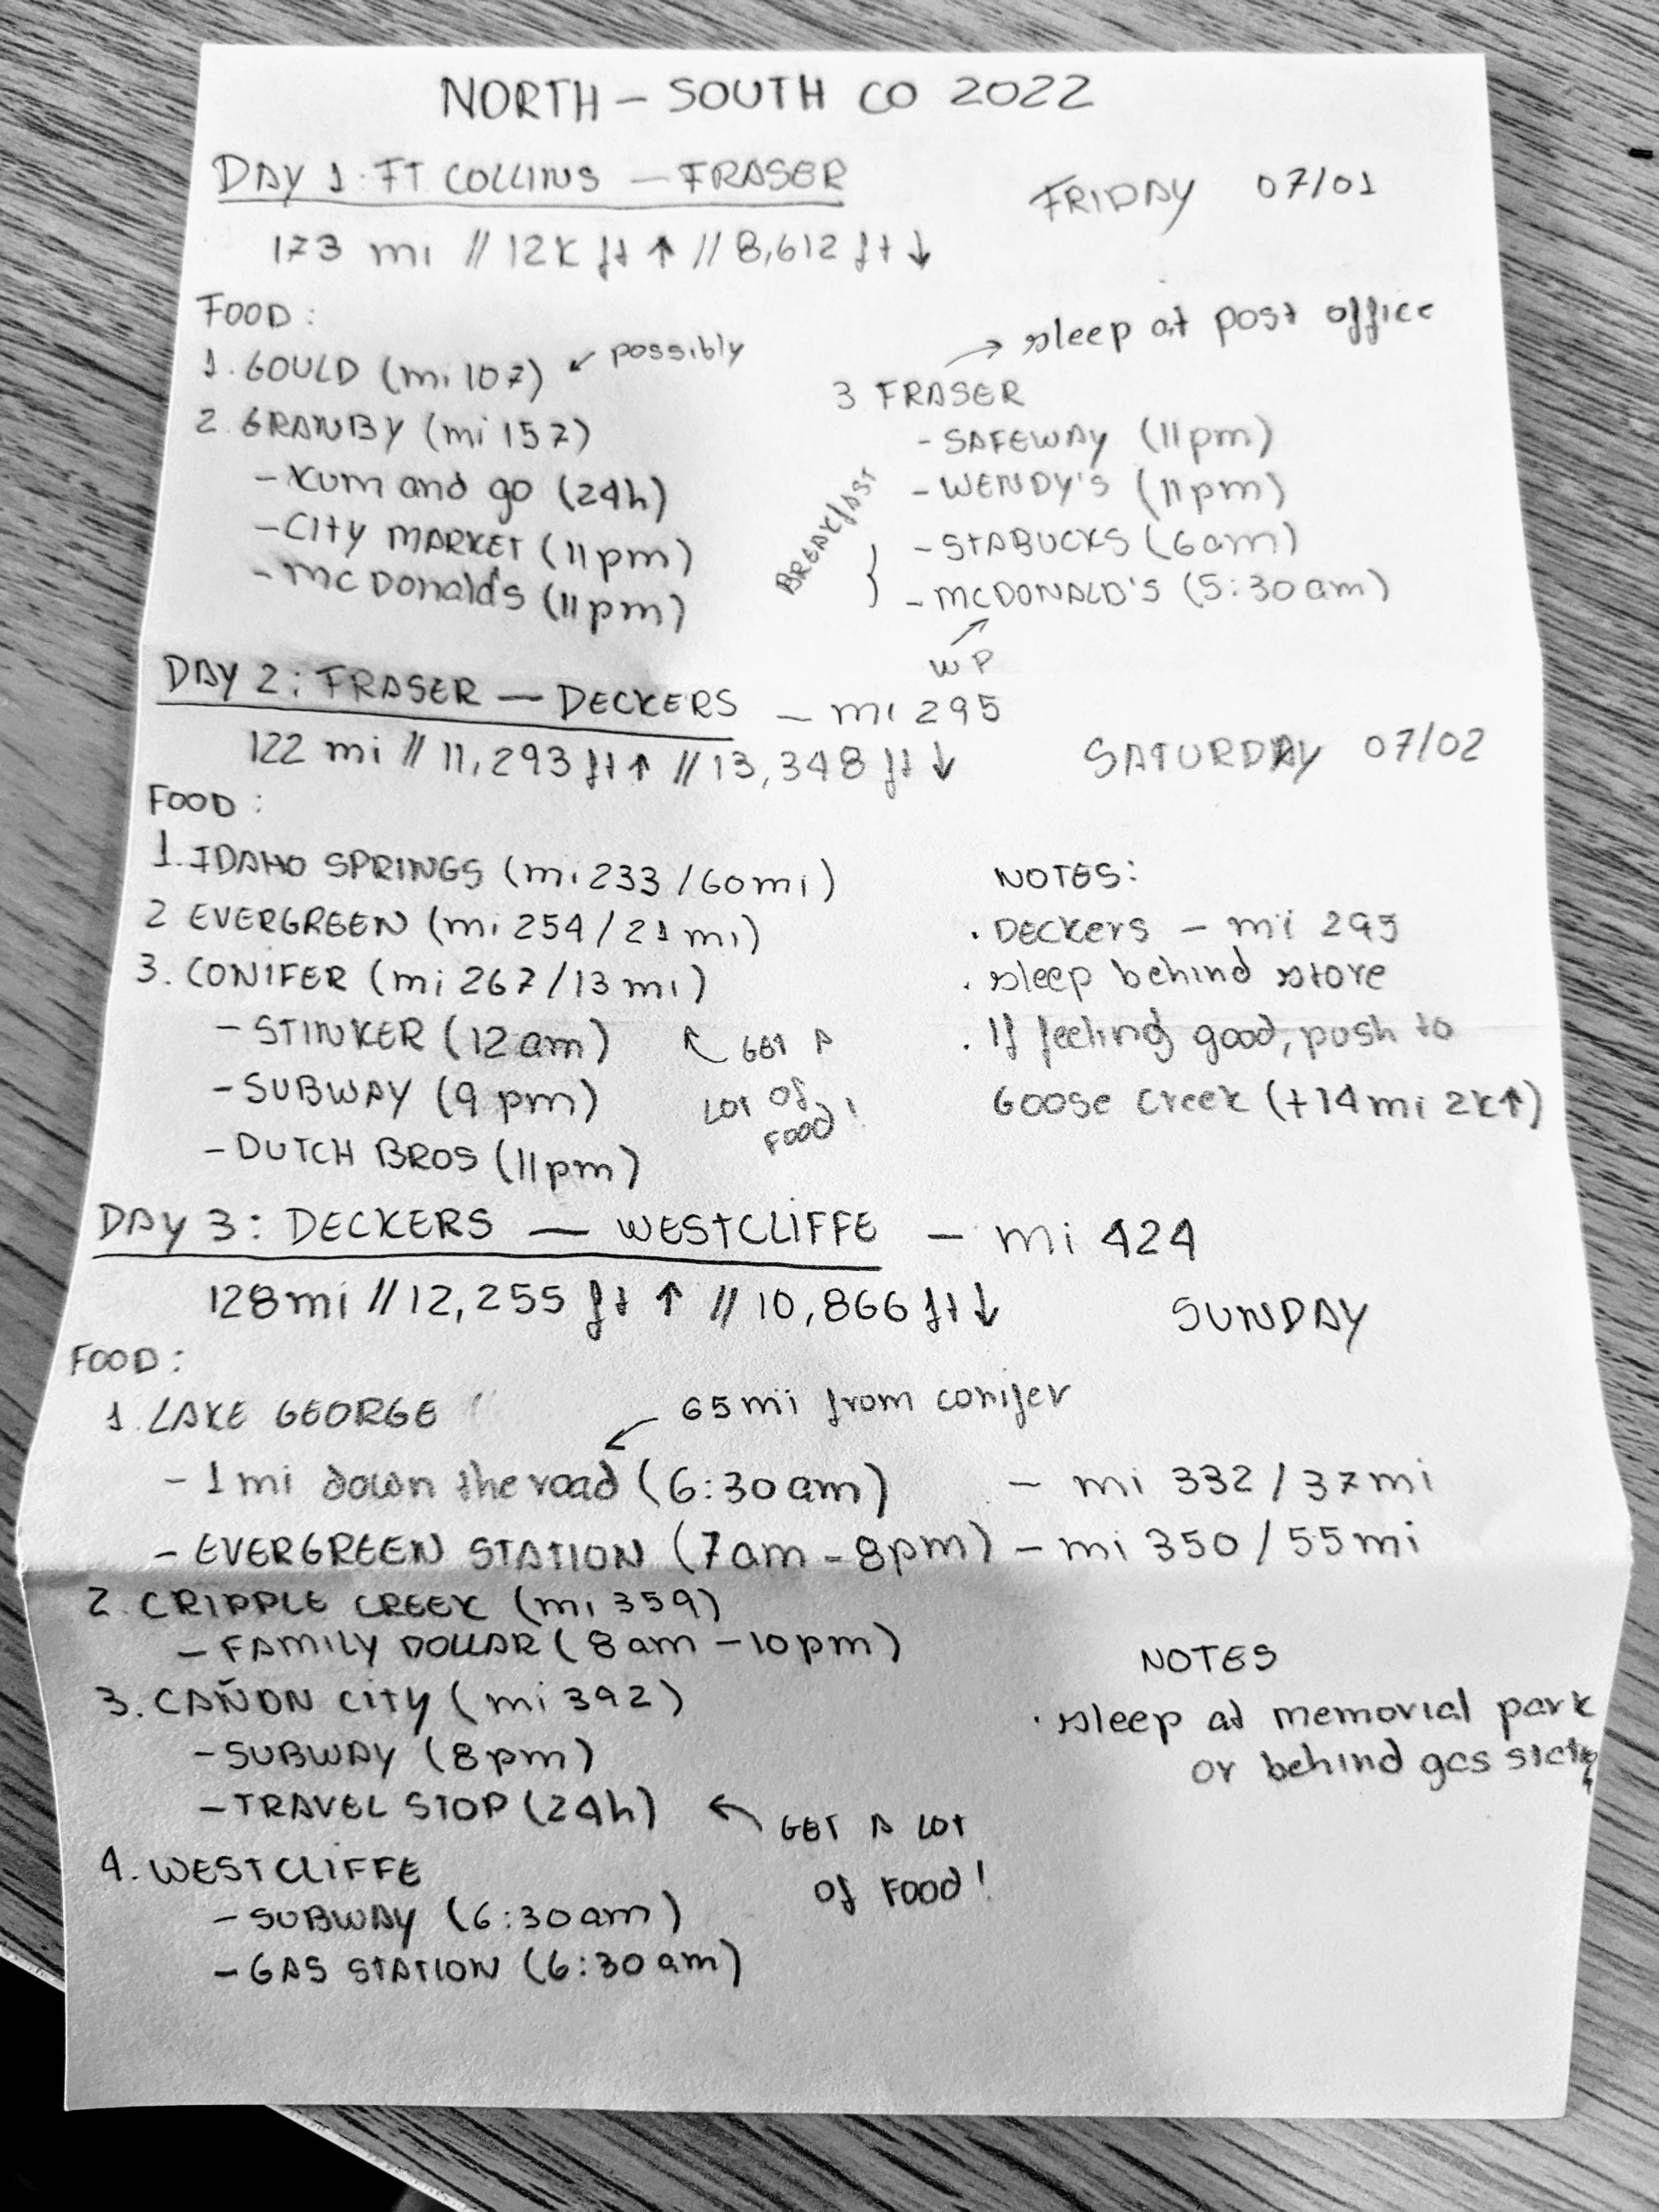 NORTH – SOUTH CO 2022
DAY 1: FT COLLINS – FRASER
FRIDAY 07/01
173 mi // 12K ft ↑ // 8,612 ft ↓
FOOD:
1. GOULD (mi 107) ↙ possibly
2. GRANBY (mi 157)
– Kum and go (24h)
– CITY MARKET (11pm)
– McDonald's (11pm)
→ sleep at post office
3 FRASER
– SAFEWAY (11pm)
– WENDY'S (11pm)
BREAKfAST } – STABUCKS (6am)
– MCDONALD'S (5:30am)
↗ WP
DAY 2: FRASER – DECKERS – mi 295
122 mi // 11,293 ft ↑ // 13,348 ft ↓
SATURDAY 07/02
FOOD:
1. IDAHO SPRINGS (mi 233 / 60mi)
2 EVERGREEN (mi 254 / 21 mi)
3. CONIFER (mi 267 / 13 mi)
– STINKER (12am)
– SUBWAY (9 pm)
– DUTCH BROS (11pm)
↖ GET A
LOT Of
FOOD!
NOTES:
. Deckers – mi 295
. sleep behind store
. If feeling good, push to
Goose Creek (+14mi 2k↑)
DAY 3: DECKERS – WESTCLIFFE – mi 424
128mi // 12,255 ft ↑ // 10,866 ft ↓
SUNDAY
FOOD:
1. LAKE GEORGE
↙ 65mi from conifer
– 1 mi down the road (6:30am) – mi 332 / 37mi
– EVERGREEN STATION (7am – 8pm) – mi 350 / 55mi
2. CRIPPLE CREEK (mi 359)
– FAMILY DOLLAR (8am – 10pm)
3. CAÑON CITY (mi 392)
– SUBWAY (8pm)
– TRAVEL STOP (24h) ↖ GET A LOT
Of FOOD!
NOTES
· sleep at memorial park
or behind gas
4. WESTCLIFFE
– SUBWAY (6:30am)
– GAS STATION (6:30am)